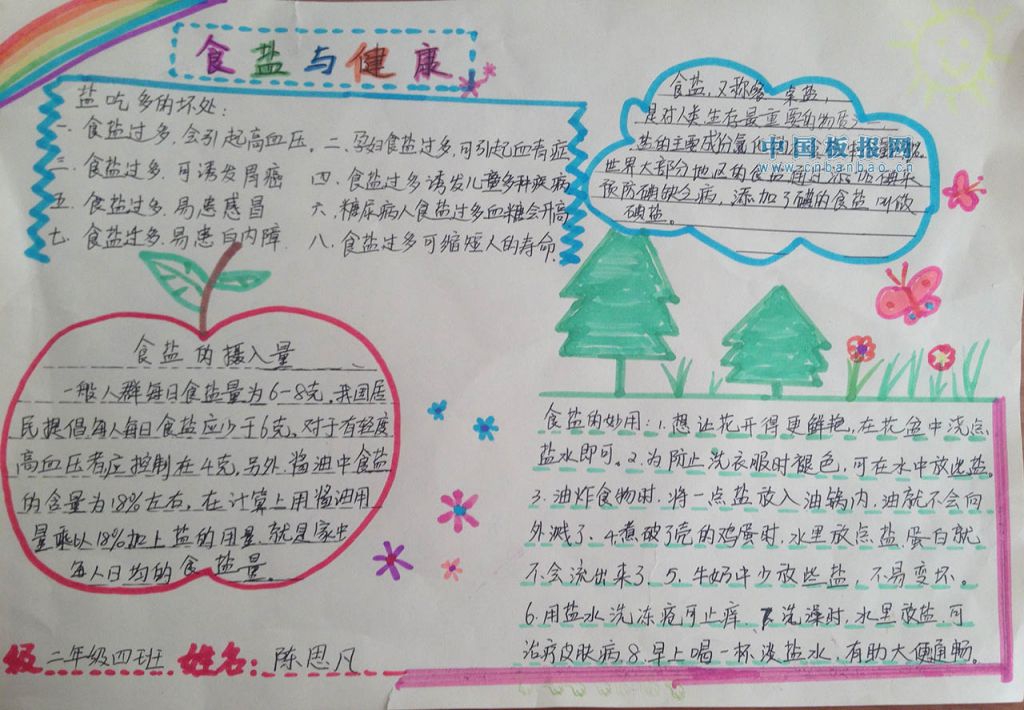 食盐与健康
盐吃多的坏处:
一.食盐过多,会引起高血压。二.孕妇食盐过多,可引起血有症
三.食盐过多.可诱发胃癌 四.食盐过多诱发儿童多种疾病
五.食盐过多.易患感冒 六.糖尿病人食盐过多血糖会升高
七.食盐过多.易患白内障. 八.食盐过多可缩短人的寿命.
食盐,又称 桌盐,
是对人类生存最重要的物质
盐的主要成份氯化
世界大部分地区的食盐通过添
预防碘缺乏病,添加了碘的食盐叫做
碘盐。
中国板报网
www.cnbanbao.cn
食盐的摄入量
一般人群每日食盐量为6-8克.我国居
民提倡每人每日食盐应少于6克。对于有轻度
高血压者应控制在4克。另外,酱油中食盐
的含量为18%左右。在计算上用酱油用
量乘以18%加上盐的用量.就是家中
每人日均的食盐量。
食盐的妙用:1.想让花开得更鲜艳,在花盆中浇点
盐水即可。2.为防止洗衣服时褪色,可在水中放些盐。
3.油炸食物时.将一点盐放入油锅内.油就不会向
外溅了.4.煮破了壳的鸡蛋时.水里放点盐.蛋白就
不会流出来了.5.牛奶中少放些盐,不易变坏。
6.用盐水洗冻疮可止痒.7.洗澡时.水里放盐.可
治疗皮肤病.8.早上喝一杯淡盐水,有助大便通畅。
级二年级四班 姓名:陈思凡